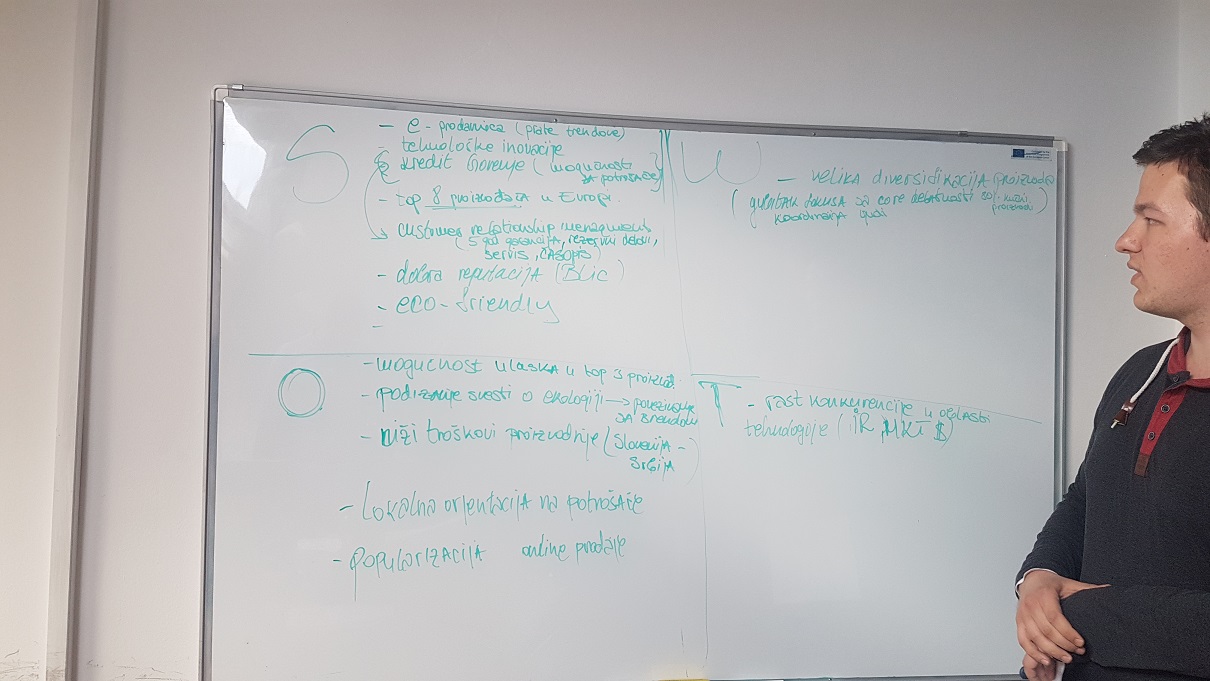 S
- e-prodavnica (prate trendove)
- tehnološke inovacije
kredit Gorenje (mogućnosti
za potrošače)
- top 8 proizvođača u Europi.
customer relationship menagment
(5 god garancija, rezervni delovi,
servis, časopis)
- dobra reputacija (BLic)
- eco-friendly
-
W
- velika diversidikacija proizvoda
(gubitak fokusa sa core delatnosti
koordinacija
proizvodi)
O
- mogućnost ulaska u top 3 proizvođ.
- podizanje svesti o ekologiji → povezivanje
sa brendom
- niži troškovi proizvodnje (Slovenija -
Srbija)
- Lokalna orjentacija na potrošače
- popularizacija online prodaje
T
- rast konkurencije u oblasti
tehnologije (IR, MKT $)